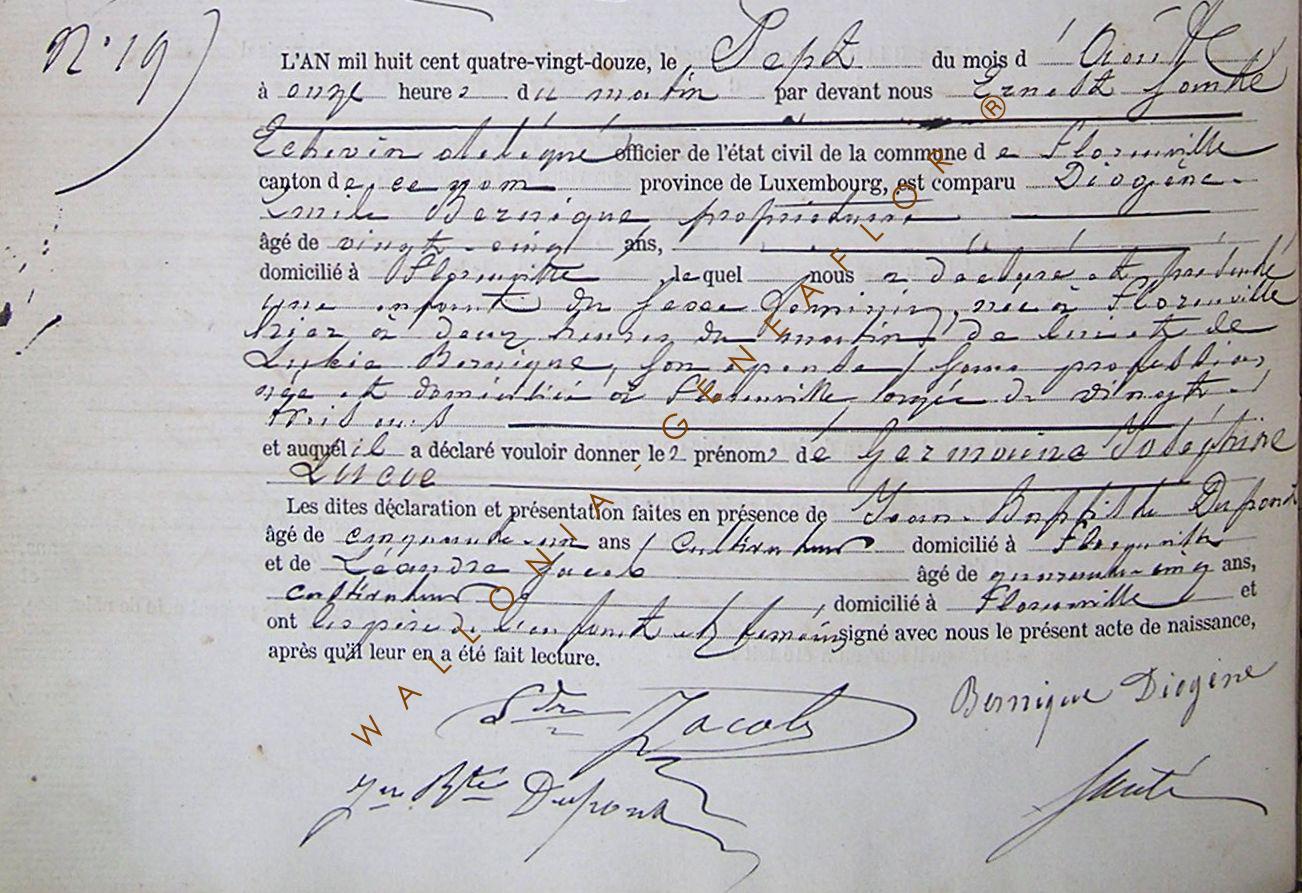 N° 19
L'AN mil huit cent quatre-vingt-douze, le Sept du mois d'Août
à onze heures du matin par devant nous Ernest
Echevin délégué officier de l'état civil de la commune de Florenville
canton de ce nom province de Luxembourg, est comparu Diogène
Emile Bernique propriétaire
âgé de vingt-cinq ans,
domicilié à Florenville lequel nous a déclaré et présenté
une enfant du sexe féminin, née à Florenville
hier à deux heures du matin, de lui et de
Bernique, son épouse, sans profession,
née et domiciliée à Florenville, âgée de vingt-
trois ans
et auquel il a déclaré vouloir donner les prénoms de Germaine Joséphine
Lucie
Les dites déclaration et présentation faites en présence de Jean-Baptiste Dupont
âgé de cinquante-un ans, Cultivateur domicilié à Florenville
et de Léandre Jacob âgé de quarante-cinq ans,
cultivateur, domicilié à Florenville et
ont les père de l'enfant et témoins signé avec nous le présent acte de naissance,
après qu'il leur en a été fait lecture.
Bernique Diogène
Jacob
Jn Bte Dupont
WALLONIA-GENEAFLOR ®